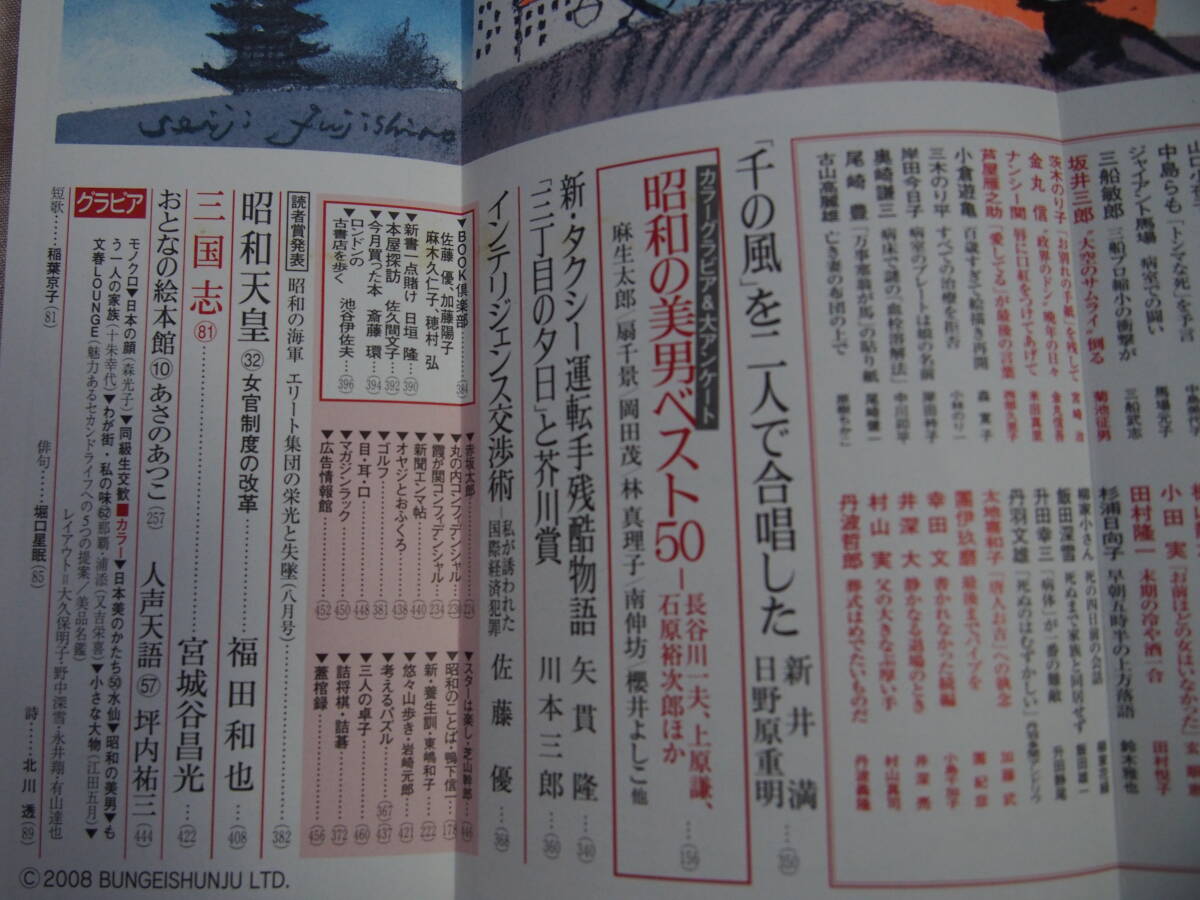 Seiji Fujishiro
中島らも 「トンマな死」を予言
ジャイアント馬場 病室での闘い 馬場元子
三船敏郎 三船プロ縮小の衝撃が 三船武志
坂井三郎 “大空のサムライ”倒る 菊池征男
茨木のり子 「お別れの手紙」を残して 宮崎治
金丸信 “政界のドン”晩年の日々 金丸信吾
ナンシー関 唇に口紅をつけてあげて 米田真里
芦屋雁之助 「愛してる」が最後の言葉
小倉遊亀 百歳すぎて絵描き再開
三木のり平 すべての治療を拒否 小林のり一
岸田今日子 病室のプレートは娘の名前 岸田衿子
奥崎謙三 病床で謎の「血栓溶解法」
尾崎豊 「万事塞翁が馬」の貼り紙 尾崎健一
古山高麗雄 亡き妻の布団の上で
小田実 「お前ほどの女はいなかった」
田村隆一 末期の冷や酒一合 田村悦子
杉浦日向子 早朝五時半の上方落語 鈴木雅也
柳家小さん 死の四日前の会話
飯田深雪 死ぬまで家族と同居せず
升田幸三 「病体」が一番の難敵 升田静尾
丹羽文雄 「死ぬのはむずかしい」
太地喜和子 「唐人お吉」への執念 加藤武
團伊玖磨 最後までパイプを 團紀彦
幸田文 書かれなかった続編
井深大 静かなる退場のとき 井深亮
村山実 父の大きなぶ厚い手 村山真司
丹波哲郎 葬式はめでたいものだ 丹波義隆
「千の風」を二人で合唱した 新井満 日野原重明 350
カラーグラビア&大アンケート
昭和の美男ベスト50―長谷川一夫、上原謙、石原裕次郎ほか 156
麻生太郎/扇千景/岡田茂/林真理子/南伸坊/櫻井よしこ他
新・タクシー運転手残酷物語 矢貫隆 340
「三丁目の夕日」と芥川賞 川本三郎 360
インテリジェンス交渉術―私が誘われた国際経済犯罪 佐藤優 368
▼BOOK倶楽部 384
佐藤優、加藤陽子
麻木久仁子、穂村弘
▼新書一点賭け 日垣隆 390
▼本屋探訪 佐久間文子 392
▼今月買った本 斎藤環 394
▼ロンドンの古書店を歩く 池谷伊佐夫 396
▼赤坂太郎 224
▼丸の内コンフィデンシャル 230
▼霞が関コンフィデンシャル 234
▼新聞エンマ帖 440
▼オヤジとおふくろ 438
▼ゴルフ 381
▼目・耳・口 448
▼マガジンラック 450
▼広告情報館 452
▼スターは楽し・芝山幹郎 446
▼昭和のことば・鴨下信一 178
▼新・養生訓・東嶋和子 222
▼悠々山歩き・岩崎元郎 421
▼考えるパズル 367 437
▼三人の卓子 460
▼詰将棋・詰碁 372
▼蓋棺録 456
読者賞発表 昭和の海軍 エリート集団の栄光と失墜(八月号) 382
昭和天皇 32 女官制度の改革 福田和也 408
三国志 81 宮城谷昌光 422
おとなの絵本館 10 あさのあつこ 257 人声天語 57 坪内祐三 444
グラビア
モノクロ▼日本の顔(森光子)▼同級生交歓■カラー▼日本美のかたち50水仙▼昭和の美男▼も
う一人の家族(十朱幸代)▼わが街・私の味62那覇・浦添(又吉栄喜)▼小さな大物(江田五月)▼
文春LOUNGE(魅力あるセカンドライフへの5つの提案/美品名鑑)
レイアウト=大久保明子・野中深雪・永井翔・有山達也
短歌……稲葉京子 81 俳句……堀口星眠 85 詩……北川透 89
©2008 BUNGEISHUNJU LTD.